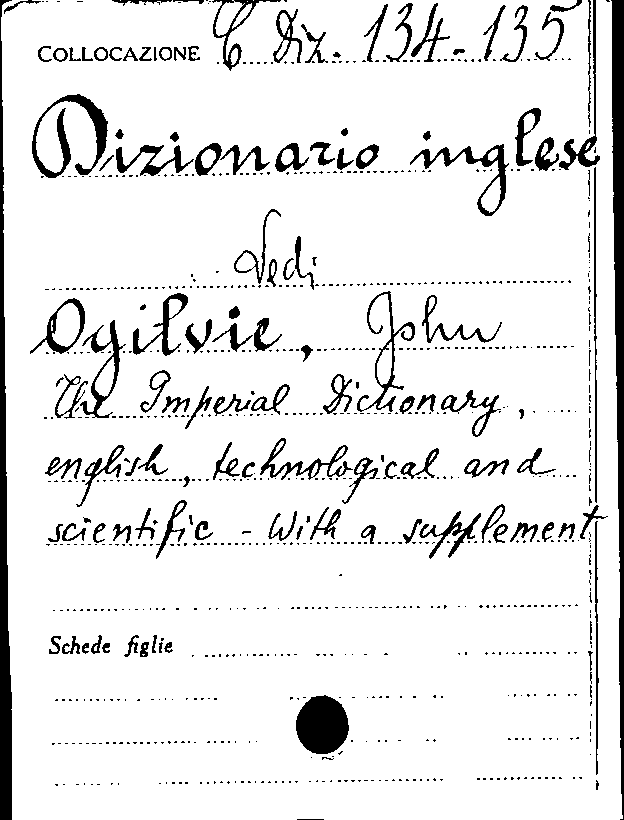 COLLOCAZIONE C Diz. 134-135
Dizionario inglese
Vedi
Ogilvie, John
The Imperial Dictionary,
english, technological and
scientific - With a supplement
Schede figlie